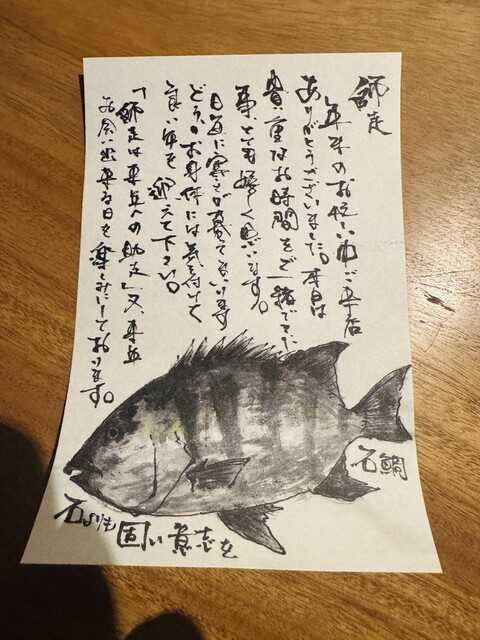 師走
年末のお忙しい中ご来店
ありがとうございました。本日は
貴重なお時間をご一緒できた
事、とても嬉しく思います。
日毎に寒さが募てまいります
どうかお身体には気を付けて
良い年を迎えて下さい。
「師走は来年への助走」又、来年
お会い出来る日を楽しみにしております。
石鯛
石よりも固い意志を